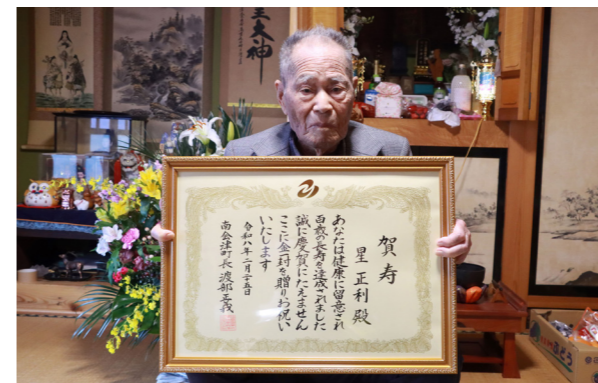 賀寿
星 正利 殿
あなたは健康に留意され
百歳の長寿を達成されました
誠に慶賀にたえません
ここに金一封を贈りお祝い
いたします
令和八年二月二十五日
南会津町長 渡部正義
大神
ぶどう